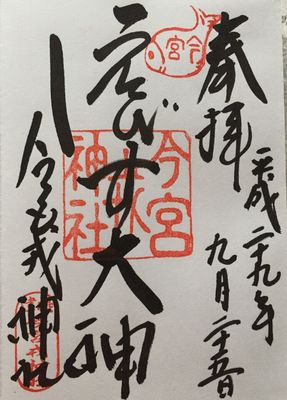 奉拝
平成二十九年
九月二十五日
今宮
ゑびす大神
今宮戎神社
今宮戎神社